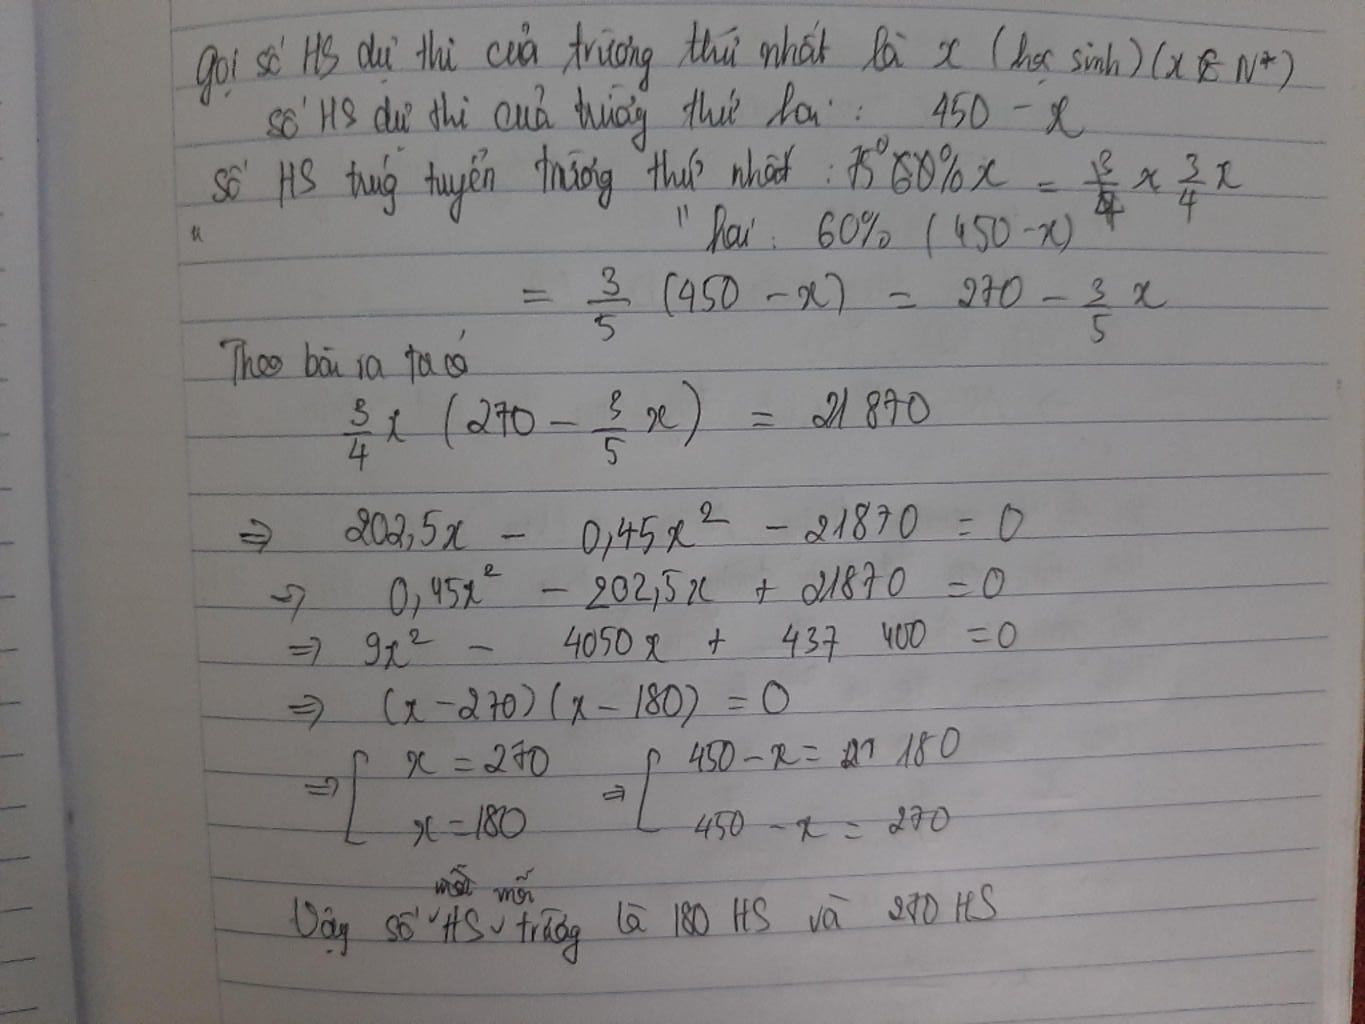 Gọi số HS dự thi của trường thứ nhất là x (học sinh) (x ∈ N*)
số HS dự thi của trường thứ hai : 450 - x
số HS trúng tuyển trường thứ nhất : 75% x = 3/4 x
" " hai : 60% (450 - x)
= 3/5 (450 - x) = 270 - 3/5 x
Theo bài ra ta có
3/4 x (270 - 3/5 x) = 21870
⇒ 202,5x - 0,45x² - 21870 = 0
⇒ 0,45x² - 202,5x + 21870 = 0
⇒ 9x² - 4050x + 437 400 = 0
⇒ (x - 270) (x - 180) = 0
⇒ [ x = 270 ⇒ [ 450 - x = 180
x = 180 450 - x = 270
Vậy số HS mỗi trường là 180 HS và 270 HS